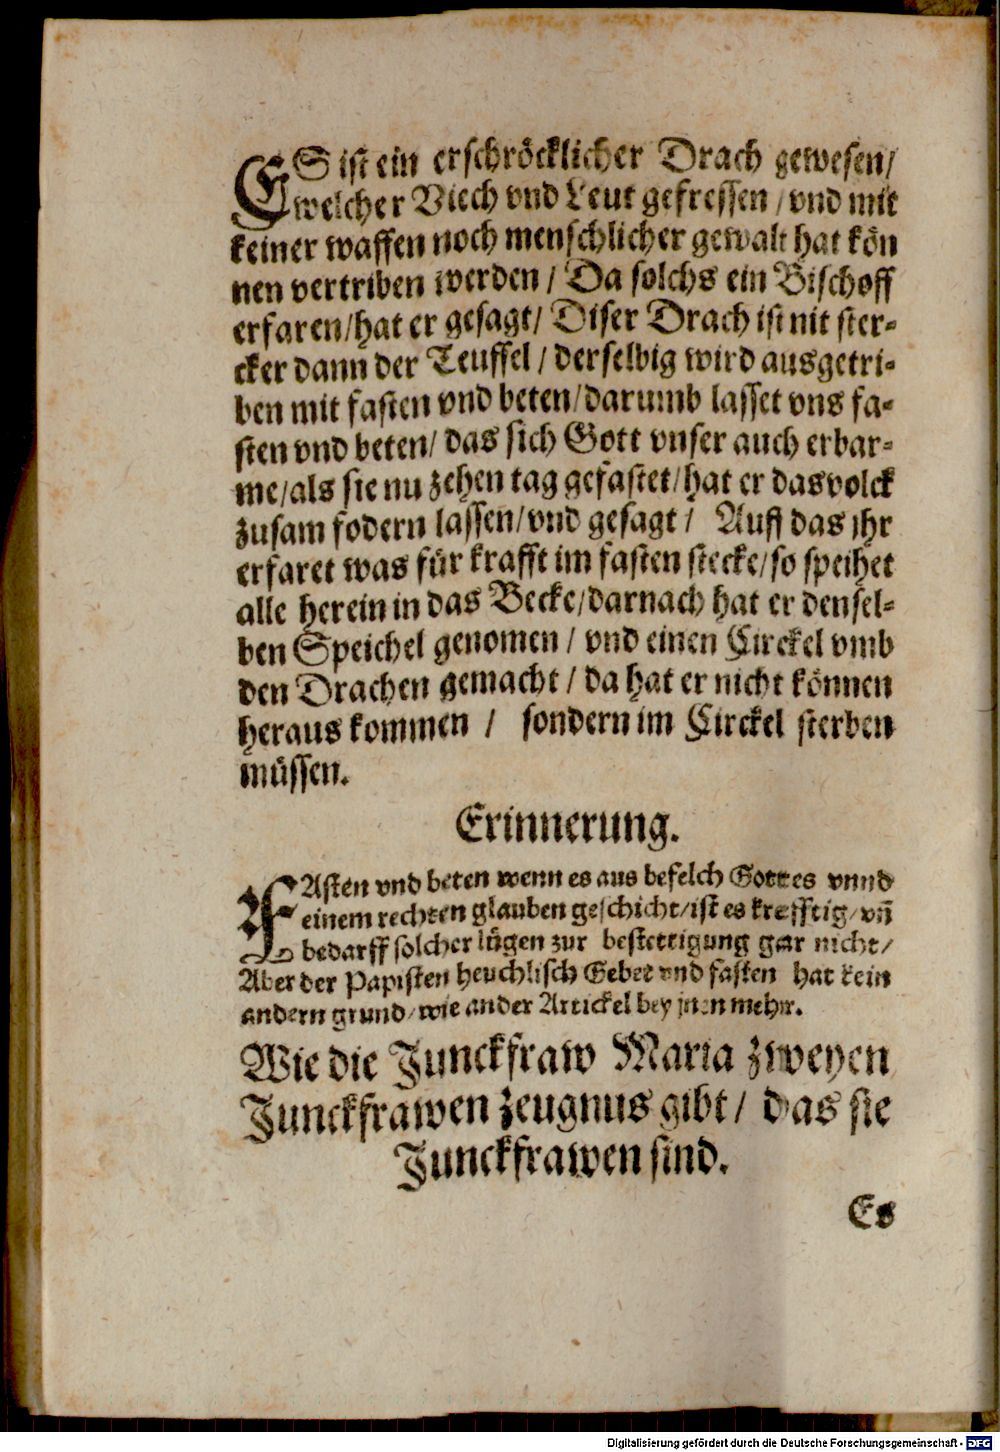 ES ist ein erschröcklicher Drach gewesen/
welcher Viech vnd Leut gefressen/ vnd mit
keiner waffen noch menschlicher gewalt hat kön
nen vertriben werden/ Da solchs ein Bischoff
erfaren/ hat er gesagt/ Diser Drach ist nit ster-
cker dann der Teuffel/ derselbig wird ausgetri-
ben mit fasten vnd beten/ darumb lasset vns fa-
sten vnd beten/ das sich Gott vnser auch erbar-
me/ als sie nu zehen tag gefastet/ hat er das volck
zusam fodern lassen/ vnd gesagt/ Auff das jhr
erfaret was für krafft im fasten stecke/ so speihet
alle herein in das Becke/ darnach hat er densel-
ben Speichel genomen/ vnd einen Circkel vmb
den Drachen gemacht/ da hat er nicht können
heraus kommen/ sondern im Circkel sterben
müssen.
Erinnerung.
FAsten vnd beten wenn es aus befelch Gottes vnnd
einem rechten glauben geschicht/ ist es krefftig/ vñ
bedarff solcher lügen zur bestettigung gar nicht/
Aber der Papisten heuchlisch Gebet vnd fasten hat kein
andern grund/ wie ander Artickel bey jnen mehr.
Wie die Junckfraw Maria zweyen
Junckfrawen zeugnus gibt/ das sie
Junckfrawen sind.
Es
Digitalisierung gefördert durch die Deutsche Forschungsgemeinschaft - DFG